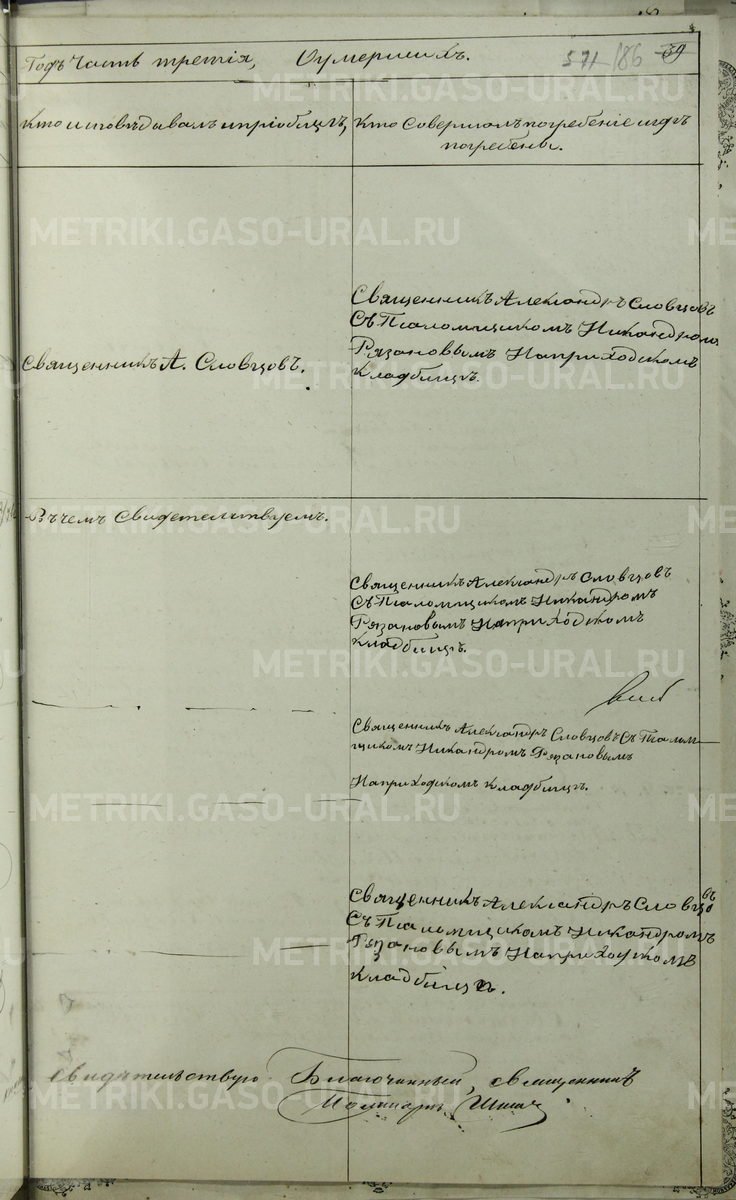 Годъ Часть третія, Оумершихъ.
571 186 39
Кто исповѣдывалъ и пріобщалъ,
Кто Совершалъ погребеніе и гдѣ
погребены.
Священникъ Александръ Словцовъ
Съ Псаломщикомъ Никандромъ
Рязановымъ На приходскомъ
Кладбищѣ.
Священникъ А. Словцовъ.
Въ чемъ Свидетельствуемъ.
Священникъ Александръ Словцовъ
Съ Псаломщикомъ Никандромъ
Рязановымъ На приходскомъ
Кладбищѣ.
Священникъ Александръ Словцовъ Съ Псалом-
щикомъ Никандромъ Рязановымъ
На приходскомъ Кладбищѣ.
Священникъ Александръ Словцовъ
Съ Псаломщикомъ Никандромъ
Рязановымъ На приходскомъ
Кладбищѣ.
Свидѣтельствую Благочинный, священникъ
METRIKI.GASO-URAL.RU